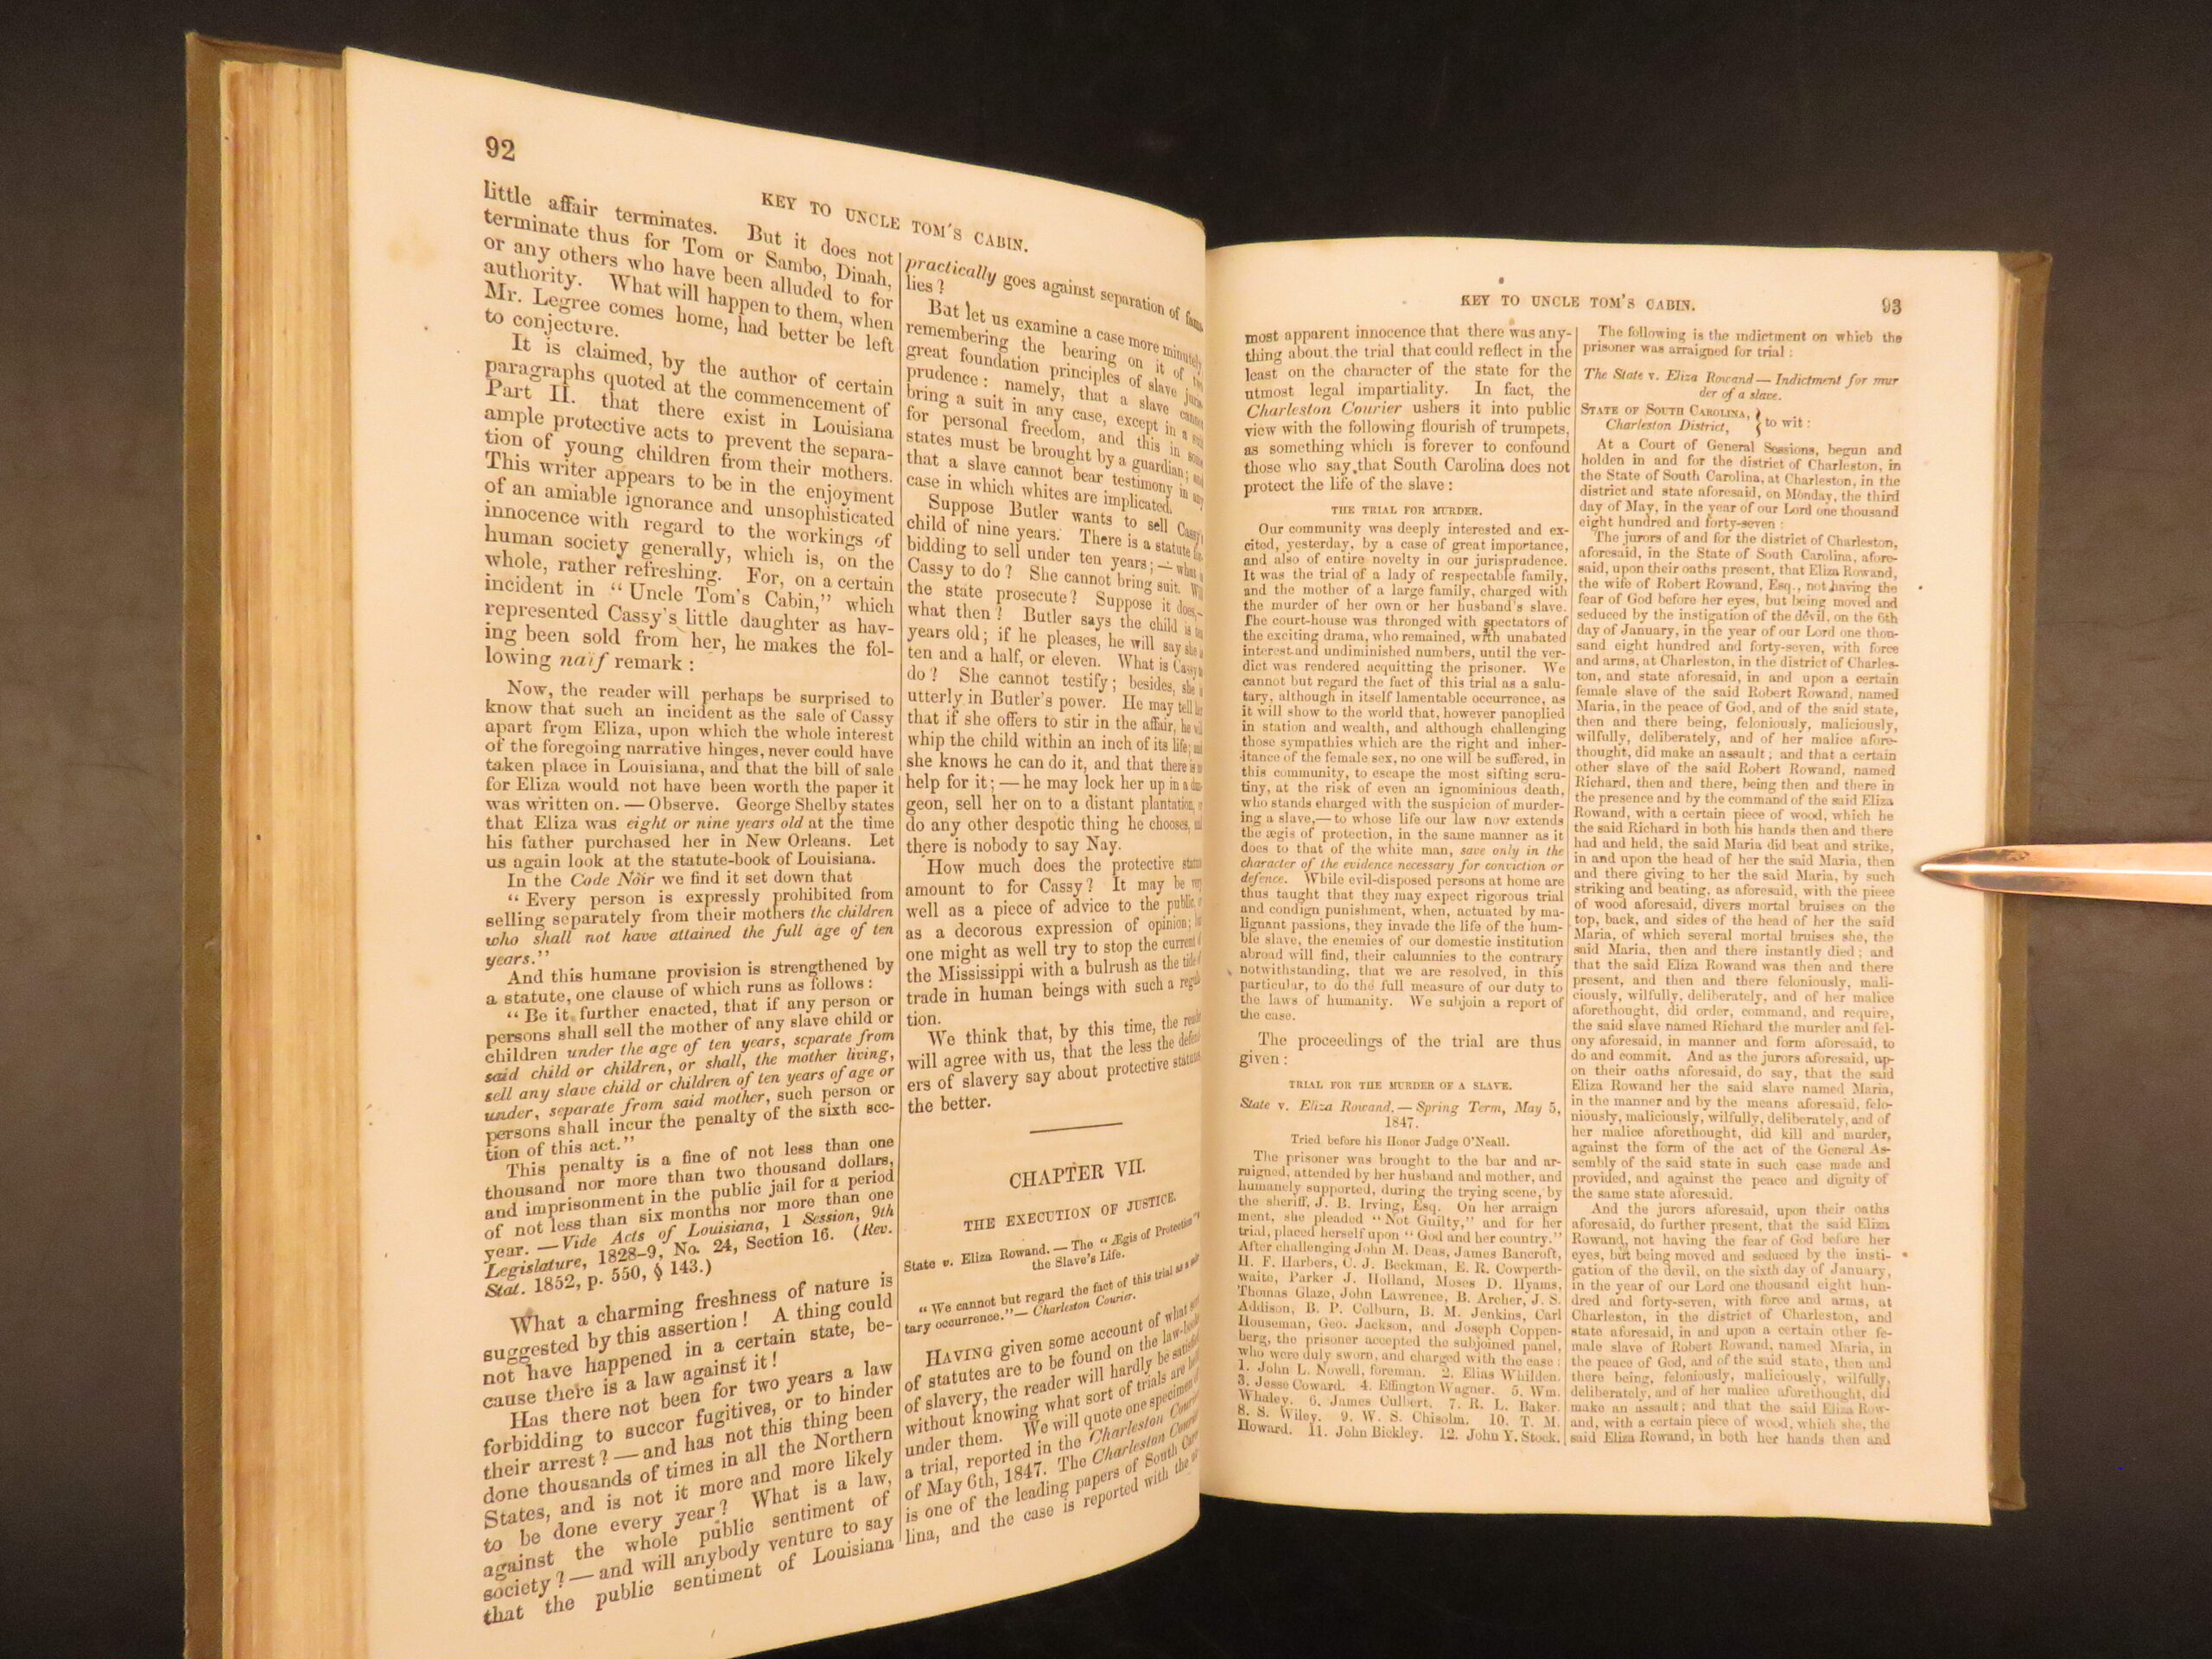 92
KEY TO UNCLE TOM'S CABIN.
little affair terminates. But it does not
terminate thus for Tom or Sambo, Dinah,
or any others who have been alluded to for
authority. What will happen to them, when
Mr. Legree comes home, had better be left
to conjecture.
It is claimed, by the author of certain
paragraphs quoted at the commencement of
Part II. that there exist in Louisiana
ample protective acts to prevent the separa-
tion of young children from their mothers.
This writer appears to be in the enjoyment
of an amiable ignorance and unsophisticated
innocence with regard to the workings of
human society generally, which is, on the
whole, rather refreshing. For, on a certain
incident in "Uncle Tom's Cabin," which
represented Cassy's little daughter as hav-
ing been sold from her, he makes the fol-
lowing naïf remark :
Now, the reader will perhaps be surprised to
know that such an incident as the sale of Cassy
apart from Eliza, upon which the whole interest
of the foregoing narrative hinges, never could have
taken place in Louisiana, and that the bill of sale
for Eliza would not have been worth the paper it
was written on. — Observe. George Shelby states
that Eliza was eight or nine years old at the time
his father purchased her in New Orleans. Let
us again look at the statute-book of Louisiana.
In the Code Noir we find it set down that
"Every person is expressly prohibited from
selling separately from their mothers the children
who shall not have attained the full age of ten
years."
And this humane provision is strengthened by
a statute, one clause of which runs as follows :
"Be it further enacted, that if any person or
persons shall sell the mother of any slave child or
children under the age of ten years, separate from
said child or children, or shall, the mother living,
sell any slave child or children of ten years of age or
under, separate from said mother, such person or
persons shall incur the penalty of the sixth sec-
tion of this act."
This penalty is a fine of not less than one
thousand nor more than two thousand dollars,
and imprisonment in the public jail for a period
of not less than six months nor more than one
year. — Vide Acts of Louisiana, 1 Session, 9th
Legislature, 1828-9, No. 24, Section 16. (Rev.
Stat. 1852, p. 550, § 143.)
What a charming freshness of nature is
suggested by this assertion ! A thing could
not have happened in a certain state, be-
cause there is a law against it !
Has there not been for two years a law
forbidding to succor fugitives, or to hinder
their arrest ? — and has not this thing been
done thousands of times in all the Northern
States, and is not it more and more likely
to be done every year ? What is a law,
against the whole public sentiment of
society ? — and will anybody venture to say
that the public sentiment of Louisiana
practically goes against separation of fami-
lies ?
But let us examine a case more minutely
remembering the bearing on it of two
great foundation principles of slave juris-
prudence : namely, that a slave cannot
bring a suit in any case, except in a suit
for personal freedom, and this in some
states must be brought by a guardian ; and
that a slave cannot bear testimony in any
case in which whites are implicated.
Suppose Butler wants to sell Cassy's
child of nine years. There is a statute for-
bidding to sell under ten years ; — what is
Cassy to do ? She cannot bring suit. Will
the state prosecute ? Suppose it does, —
what then ? Butler says the child is ten
years old ; if he pleases, he will say she is
ten and a half, or eleven. What is Cassy to
do ? She cannot testify ; besides, she is
utterly in Butler's power. He may tell her
that if she offers to stir in the affair, he will
whip the child within an inch of its life ; and
she knows he can do it, and that there is no
help for it ; — he may lock her up in a dun-
geon, sell her on to a distant plantation, or
do any other despotic thing he chooses, and
there is nobody to say Nay.
How much does the protective statute
amount to for Cassy ? It may be very
well as a piece of advice to the public, or
as a decorous expression of opinion ; but
one might as well try to stop the current of
the Mississippi with a bulrush as the tide of
trade in human beings with such a regula-
tion.
We think that, by this time, the reader
will agree with us, that the less the defend-
ers of slavery say about protective statutes,
the better.
CHAPTER VII.
THE EXECUTION OF JUSTICE.
State v. Eliza Rowand. — The "Ægis of Protection" to
the Slave's Life.
"We cannot but regard the fact of this trial as a salu-
tary occurrence." — Charleston Courier.
HAVING given some account of what sort
of statutes are to be found on the law-books
of slavery, the reader will hardly be satisfied
without knowing what sort of trials are held
under them. We will quote one specimen of
a trial, reported in the Charleston Courier
of May 6th, 1847. The Charleston Courier
is one of the leading papers of South Caro-
lina, and the case is reported with the ut-
KEY TO UNCLE TOM'S CABIN.
93
most apparent innocence that there was any-
thing about the trial that could reflect in the
least on the character of the state for the
utmost legal impartiality. In fact, the
Charleston Courier ushers it into public
view with the following flourish of trumpets,
as something which is forever to confound
those who say that South Carolina does not
protect the life of the slave :
THE TRIAL FOR MURDER.
Our community was deeply interested and ex-
cited, yesterday, by a case of great importance,
and also of entire novelty in our jurisprudence.
It was the trial of a lady of respectable family,
and the mother of a large family, charged with
the murder of her own or her husband's slave.
The court-house was thronged with spectators of
the exciting drama, who remained, with unabated
interest and undiminished numbers, until the ver-
dict was rendered acquitting the prisoner. We
cannot but regard the fact of this trial as a salu-
tary, although in itself lamentable occurrence, as
it will show to the world that, however panoplied
in station and wealth, and although challenging
those sympathies which are the right and inher-
itance of the female sex, no one will be suffered, in
this community, to escape the most sifting scru-
tiny, at the risk of even an ignominious death,
who stands charged with the suspicion of murder-
ing a slave, — to whose life our law now extends
the ægis of protection, in the same manner as it
does to that of the white man, save only in the
character of the evidence necessary for conviction or
defence. While evil-disposed persons at home are
thus taught that they may expect rigorous trial
and condign punishment, when, actuated by ma-
lignant passions, they invade the life of the hum-
ble slave, the enemies of our domestic institution
abroad will find, their calumnies to the contrary
notwithstanding, that we are resolved, in this
particular, to do the full measure of our duty to
the laws of humanity. We subjoin a report of
the case.
The proceedings of the trial are thus
given :
TRIAL FOR THE MURDER OF A SLAVE.
State v. Eliza Rowand. — Spring Term, May 5,
1847.
Tried before his Honor Judge O'Neall.
The prisoner was brought to the bar and ar-
raigned, attended by her husband and mother, and
humanely supported, during the trying scene, by
the sheriff, J. B. Irving, Esq. On her arraign
ment, she pleaded "Not Guilty," and for her
trial, placed herself upon "God and her country."
After challenging John M. Deas, James Bancroft,
H. F. Harbers, C. J. Beckman, E. R. Cowperth-
waite, Parker J. Holland, Moses D. Hyams,
Thomas Glaze, John Lawrence, B. Archer, J. S.
Addison, B. P. Colburn, B. M. Jenkins, Carl
Houseman, Geo. Jackson, and Joseph Coppen-
berg, the prisoner accepted the subjoined panel,
who were duly sworn, and charged with the case :
1. John L. Nowell, foreman. 2. Elias Whilden.
3. Jesse Coward. 4. Effington Wagner. 5. Wm.
Whaley. 6. James Culbert. 7. R. L. Baker.
8. S. Wiley. 9. W. S. Chisolm. 10. T. M.
Howard. 11. John Bickley. 12. John Y. Stock.
The following is the indictment on which the
prisoner was arraigned for trial :
The State v. Eliza Rowand — Indictment for mur
der of a slave.
STATE OF SOUTH CAROLINA, } to wit :
Charleston District,
At a Court of General Sessions, begun and
holden in and for the district of Charleston, in
the State of South Carolina, at Charleston, in the
district and state aforesaid, on Monday, the third
day of May, in the year of our Lord one thousand
eight hundred and forty-seven :
The jurors of and for the district of Charleston,
aforesaid, in the State of South Carolina, afore-
said, upon their oaths present, that Eliza Rowand,
the wife of Robert Rowand, Esq., not having the
fear of God before her eyes, but being moved and
seduced by the instigation of the devil, on the 6th
day of January, in the year of our Lord one thou-
sand eight hundred and forty-seven, with force
and arms, at Charleston, in the district of Charles-
ton, and state aforesaid, in and upon a certain
female slave of the said Robert Rowand, named
Maria, in the peace of God, and of the said state,
then and there being, feloniously, maliciously,
wilfully, deliberately, and of her malice afore-
thought, did make an assault ; and that a certain
other slave of the said Robert Rowand, named
Richard, then and there, being then and there in
the presence and by the command of the said Eliza
Rowand, with a certain piece of wood, which he
the said Richard in both his hands then and there
had and held, the said Maria did beat and strike,
in and upon the head of her the said Maria, then
and there giving to her the said Maria, by such
striking and beating, as aforesaid, with the piece
of wood aforesaid, divers mortal bruises on the
top, back, and sides of the head of her the said
Maria, of which several mortal bruises she, the
said Maria, then and there instantly died ; and
that the said Eliza Rowand was then and there
present, and then and there feloniously, mali-
ciously, wilfully, deliberately, and of her malice
aforethought, did order, command, and require,
the said slave named Richard the murder and fel-
ony aforesaid, in manner and form aforesaid, to
do and commit. And as the jurors aforesaid, up-
on their oaths aforesaid, do say, that the said
Eliza Rowand her the said slave named Maria,
in the manner and by the means aforesaid, felo-
niously, maliciously, wilfully, deliberately, and of
her malice aforethought, did kill and murder,
against the form of the act of the General As-
sembly of the said state in such case made and
provided, and against the peace and dignity of
the same state aforesaid.
And the jurors aforesaid, upon their oaths
aforesaid, do further present, that the said Eliza
Rowand, not having the fear of God before her
eyes, but being moved and seduced by the insti-
gation of the devil, on the sixth day of January,
in the year of our Lord one thousand eight hun-
dred and forty-seven, with force and arms, at
Charleston, in the district of Charleston, and
state aforesaid, in and upon a certain other fe-
male slave of Robert Rowand, named Maria, in
the peace of God, and of the said state, then and
there being, feloniously, maliciously, wilfully,
deliberately, and of her malice aforethought, did
make an assault ; and that the said Eliza Row-
and, with a certain piece of wood, which she, the
said Eliza Rowand, in both her hands then and